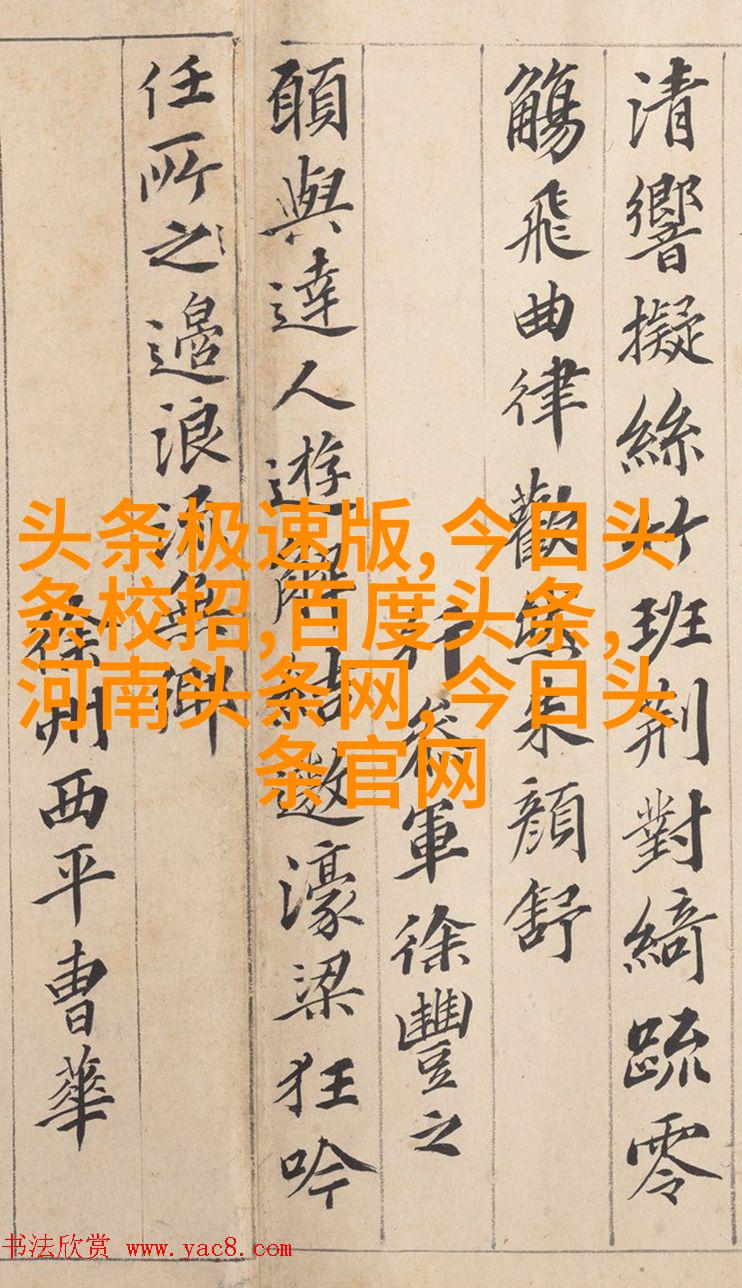 清響擬絲竹班荆對綺疏零
觴飛曲律歡然朱顏舒
行叅軍徐豐之
願與達人遊解結遨濠梁狂吟
任所之邉浪無鄉
徐州西平曹華
头条极速版,今日头
条校招,百度头条,
河南头条网,今日头
条官网
书法欣赏 www.yac8.com